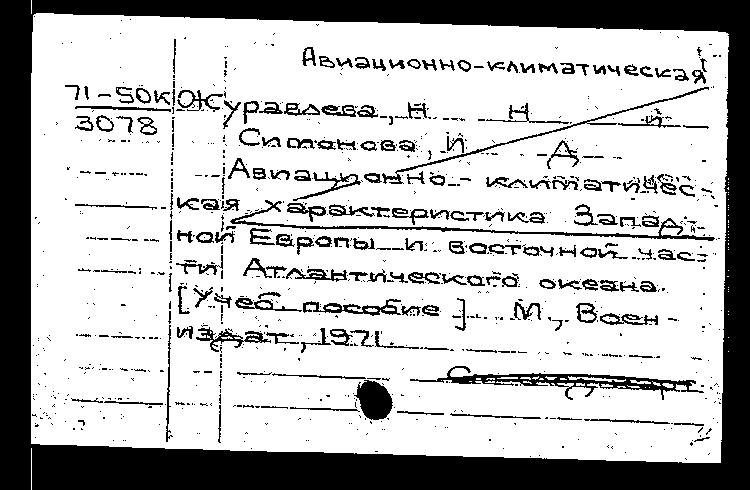 Авиационно-климатическая
71-50К Журавлева, Н Н и
3078 Ситанова, И Д
Авиационно-климатичес-
кая характеристика Запад-
ной Европы и восточной час-
ти Атлантического океана.
[Учеб. пособие] М., Воен-
издат, 1971.